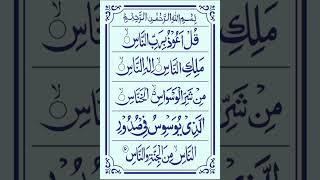 بِسْمِ اللهِ الرَّحْمٰنِ الرَّحِيْمِ
قُلْ اَعُوْذُ بِرَبِّ النَّاسِ
مَلِكِ النَّاسِ اِلٰهِ النَّاسِ
مِنْ شَرِّ الْوَسْوَاسِ الْخَنَّاسِ
الَّذِيْ يُوَسْوِسُ فِيْ صُدُوْرِ
النَّاسِ مِنَ الْجِنَّةِ وَالنَّاسِ